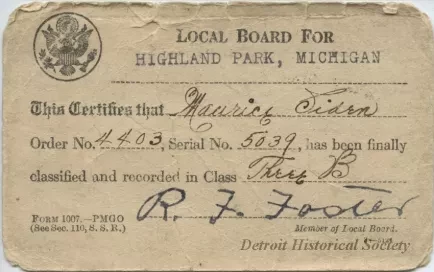 LOCAL BOARD FOR
HIGHLAND PARK, MICHIGAN
This Certifies that Maurice Siden
Order No. 4403, Serial No. 5039, has been finally
classified and recorded in Class Three B
R. F. Foster
FORM 1007.—PMGO
(See Sec. 110, S. S. R.)
Member of Local Board.
Detroit Historical Society